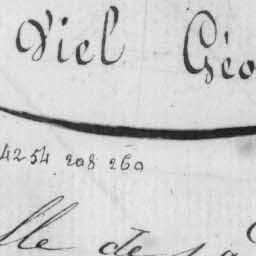 Viel Géo
4254 208 260
lle de